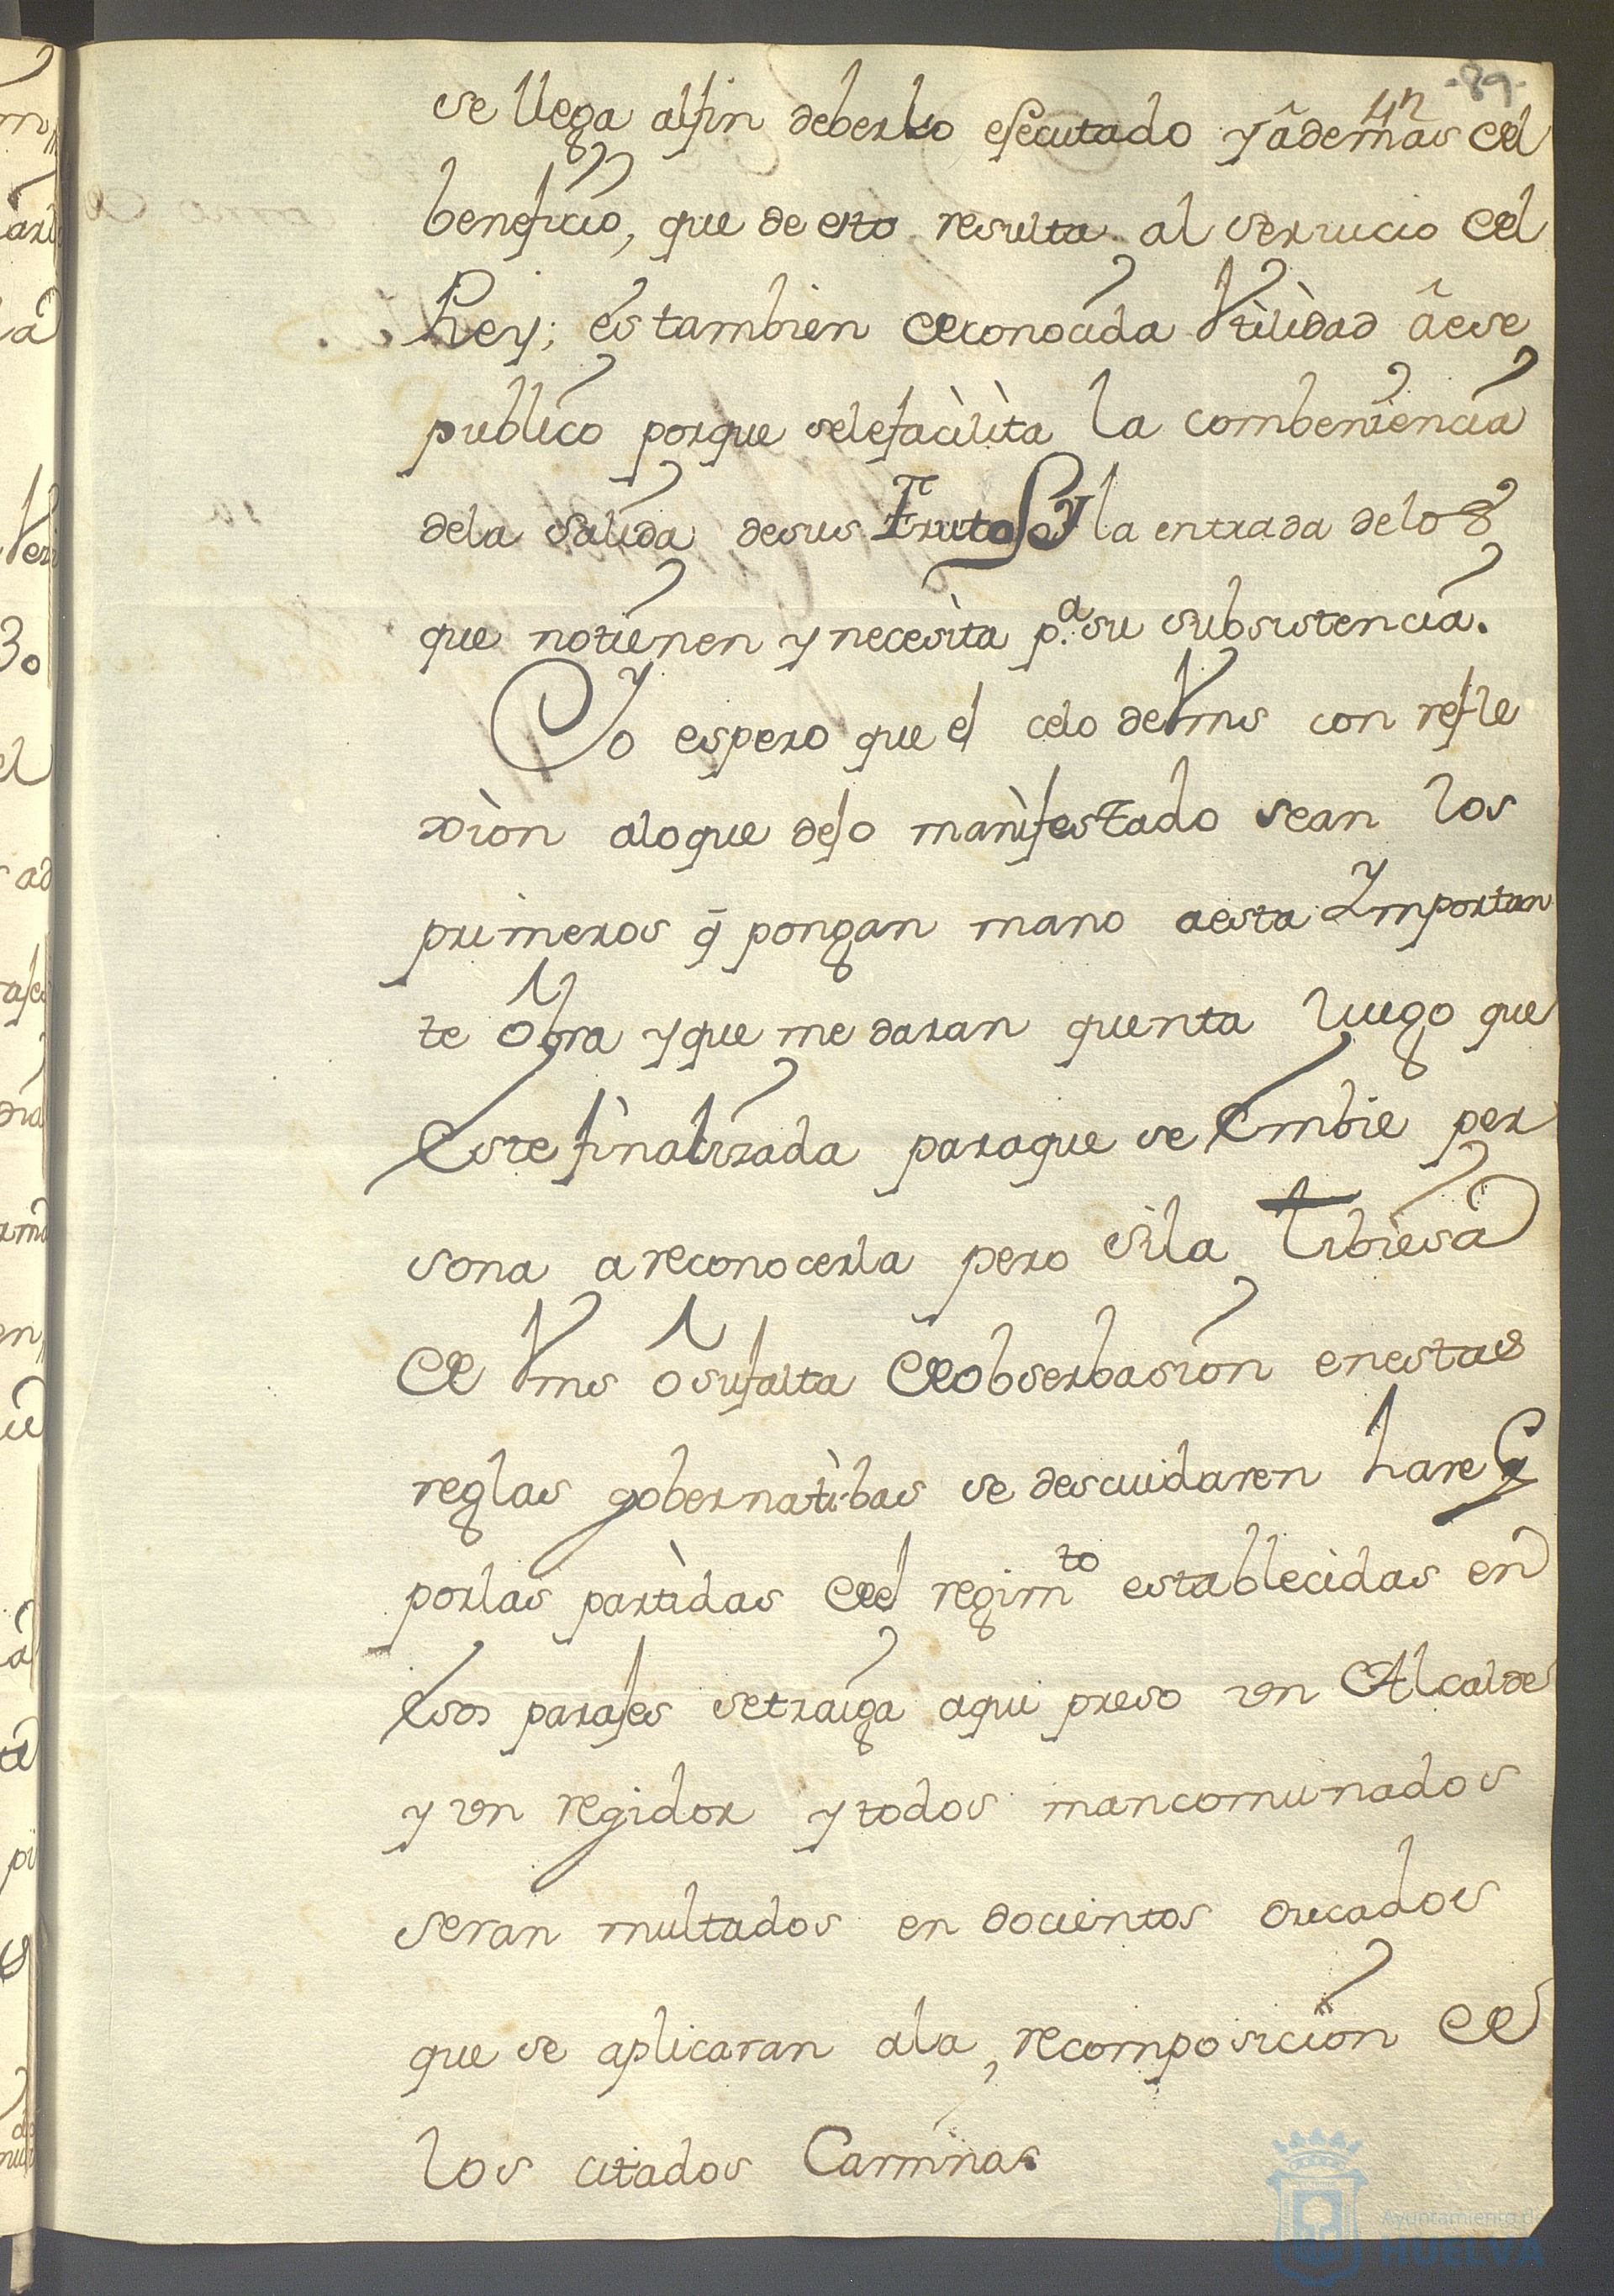 -89-
se llega alfin deberlo esecutado y âdemas del
beneficio, que de esto resulta al serucio del
Rey; es tambien deconocida Vtilidad âese
publico porque selefacilita la combeniencia
dela salida desus Frutos y la entrada delos
que notienen y necesita p.ª su subsistencia.
Yo espero que el celo deVms con refle
xion aloque dejo manifestado sean los
primeros q̄ pongan mano aesta Ymportan
te obra y que me daran quenta luego que
Este finalizada paraque se Embie per
sona a reconocerla pero sila tibiesa
de Vms o sufalta deobserbasion enestas
reglas gobernatibas se descuidaren hare q
porlas partidas del regim.to establecidas en
Esos parajes setraiga aqui preso vn Alcalde
y vn regidor y todos mancomunados
seran multados en docientos ducados
que se aplicaran ala recomposicion de
los citados Caminos
Ayuntamiento de
HUELVA